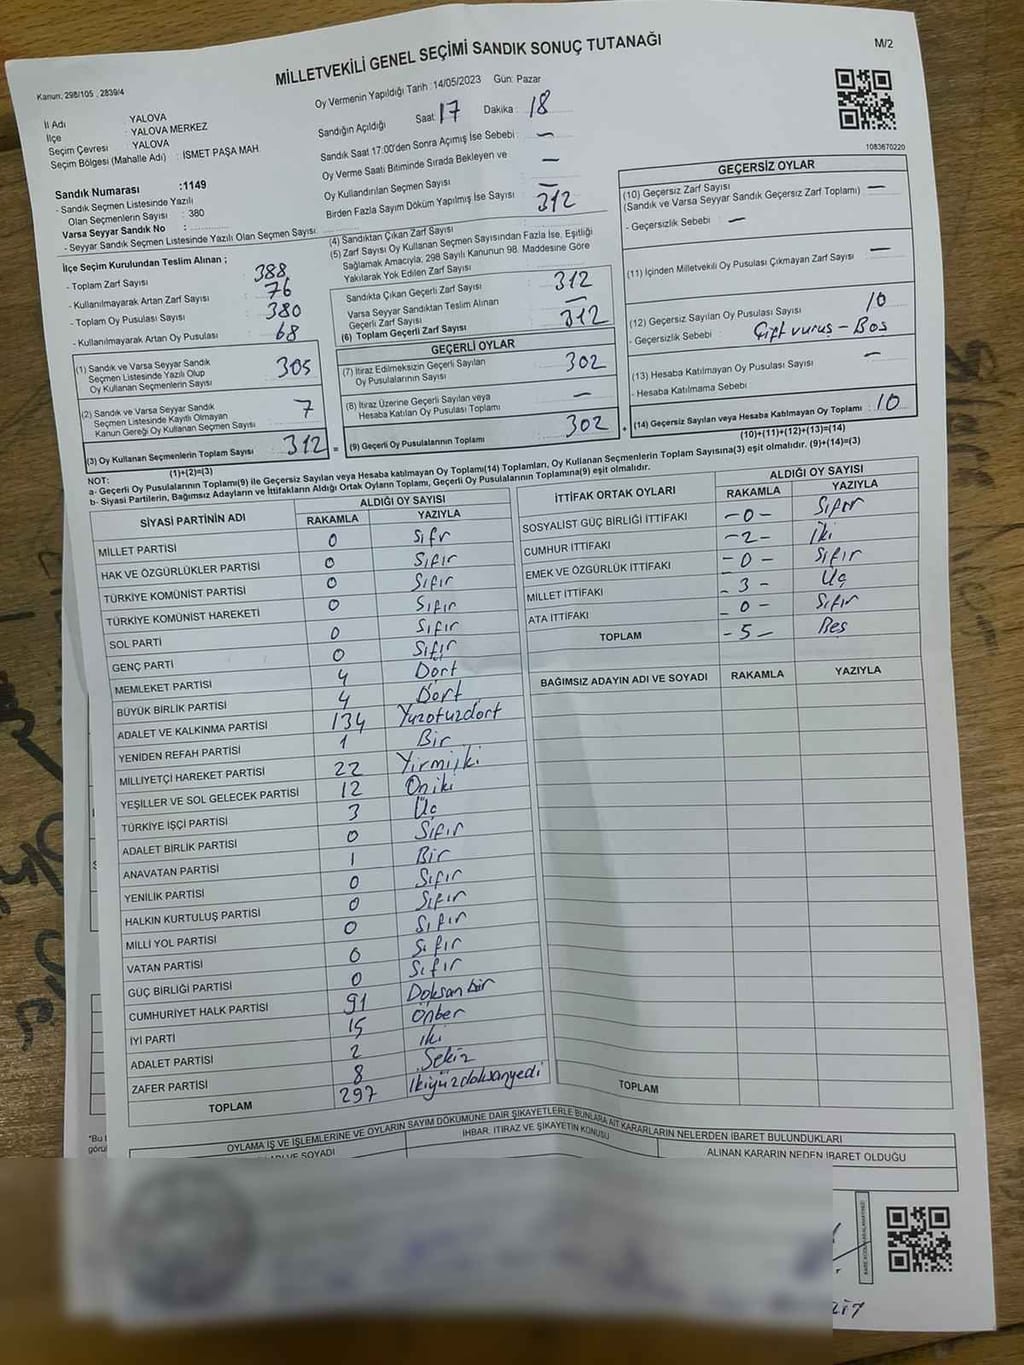 MİLLETVEKİLİ GENEL SEÇİMİ SANDIK SONUÇ TUTANAĞI
M/2
Kanun: 298/105 , 2839/4
Oy Vermenin Yapıldığı Tarih : 14/05/2023 Gün: Pazar
İl Adı YALOVA
İlçe : YALOVA MERKEZ
Seçim Çevresi : YALOVA
Seçim Bölgesi (Mahalle Adı) : İSMET PAŞA MAH.
Sandığın Açıldığı Saat 17 Dakika : 18
Sandık Saat 17:00'den Sonra Açımış İse Sebebi : —
Oy Verme Saati Bitiminde Sırada Bekleyen ve
Oy Kullandırılan Seçmen Sayısı —
Birden Fazla Sayım Döküm Yapılmış İse Sayısı —
1083670220
Sandık Numarası :1149
- Sandık Seçmen Listesinde Yazılı
Olan Seçmenlerin Sayısı : 380
Varsa Seyyar Sandık No :
- Seyyar Sandık Seçmen Listesinde Yazılı Olan Seçmen Sayısı:
İlçe Seçim Kurulundan Teslim Alınan ;
- Toplam Zarf Sayısı : 388
- Kullanılmayarak Artan Zarf Sayısı : 76
- Toplam Oy Pusulası Sayısı : 380
- Kullanılmayarak Artan Oy Pusulası : 68
(1) Sandık ve Varsa Seyyar Sandık
Seçmen Listesinde Yazılı Olup
Oy Kullanan Seçmenlerin Sayısı : 305
(2) Sandık ve Varsa Seyyar Sandık
Seçmen Listesinde Kayıtlı Olmayan
Kanun Gereği Oy Kullanan Seçmen Sayısı : 7
(3) Oy Kullanan Seçmenlerin Toplam Sayısı : 312 =
(1)+(2)=(3)
(4) Sandıktan Çıkan Zarf Sayısı : 312
(5) Zarf Sayısı Oy Kullanan Seçmen Sayısından Fazla İse, Eşitliği
Sağlamak Amacıyla, 298 Sayılı Kanunun 98. Maddesine Göre
Yakılarak Yok Edilen Zarf Sayısı :
Sandıkta Çıkan Geçerli Zarf Sayısı : 312
Varsa Seyyar Sandıktan Teslim Alınan
Geçerli Zarf Sayısı : —
(6) Toplam Geçerli Zarf Sayısı : 312
GEÇERLİ OYLAR
(7) İtiraz Edilmeksizin Geçerli Sayılan
Oy Pusulalarının Sayısı : 302
(8) İtiraz Üzerine Geçerli Sayılan veya
Hesaba Katılan Oy Pusulası Toplamı : —
(9) Geçerli Oy Pusulalarının Toplamı : 302 +
GEÇERSİZ OYLAR
(10) Geçersiz Zarf Sayısı
(Sandık ve Varsa Seyyar Sandık Geçersiz Zarf Toplamı) : —
- Geçersizlik Sebebi : —
(11) İçinden Milletvekili Oy Pusulası Çıkmayan Zarf Sayısı : —
(12) Geçersiz Sayılan Oy Pusulası Sayısı : 10
- Geçersizlik Sebebi : Çift vuruş - Boş
(13) Hesaba Katılmayan Oy Pusulası Sayısı : —
- Hesaba Katılmama Sebebi :
(14) Geçersiz Sayılan veya Hesaba Katılmayan Oy Toplamı : 10
(10)+(11)+(12)+(13)=(14)
NOT:
a- Geçerli Oy Pusulalarının Toplamı(9) ile Geçersiz Sayılan veya Hesaba katılmayan Oy Toplamı(14) Toplamları, Oy Kullanan Seçmenlerin Toplam Sayısına(3) eşit olmalıdır. (9)+(14)=(3)
b- Siyasi Partilerin, Bağımsız Adayların ve İttifakların Aldığı Ortak Oyların Toplamı, Geçerli Oy Pusulalarının Toplamına(9) eşit olmalıdır.
SİYASİ PARTİNİN ADI ALDIĞI OY SAYISI
RAKAMLA YAZIYLA
MİLLET PARTİSİ 0 Sıfr
HAK VE ÖZGÜRLÜKLER PARTİSİ 0 Sıfır
TÜRKİYE KOMÜNİST PARTİSİ 0 Sıfır
TÜRKİYE KOMÜNİST HAREKETİ 0 Sıfır
SOL PARTİ 0 Sıfır
GENÇ PARTİ 0 Sıfır
MEMLEKET PARTİSİ 4 Dört
BÜYÜK BİRLİK PARTİSİ 4 Dört
ADALET VE KALKINMA PARTİSİ 134 Yüzotuzdört
YENİDEN REFAH PARTİSİ 1 Bir
MİLLİYETÇİ HAREKET PARTİSİ 22 Yirmiiki
YEŞİLLER VE SOL GELECEK PARTİSİ 12 Oniki
TÜRKİYE İŞÇİ PARTİSİ 3 Üç
ADALET BİRLİK PARTİSİ 0 Sıfır
ANAVATAN PARTİSİ 1 Bir
YENİLİK PARTİSİ 0 Sıfır
HALKIN KURTULUŞ PARTİSİ 0 Sıfır
MİLLİ YOL PARTİSİ 0 Sıfır
VATAN PARTİSİ 0 Sıfır
GÜÇ BİRLİĞİ PARTİSİ 0 Sıfır
CUMHURİYET HALK PARTİSİ 91 Doksan bir
İYİ PARTİ 15 Onbeş
ADALET PARTİSİ 2 iki
ZAFER PARTİSİ 8 Sekiz
TOPLAM 297 İkiyüzdoksanyedi
İTTİFAK ORTAK OYLARI ALDIĞI OY SAYISI
RAKAMLA YAZIYLA
SOSYALİST GÜÇ BİRLİĞİ İTTİFAKI -0- Sıfır
CUMHUR İTTİFAKI -2- İki
EMEK VE ÖZGÜRLÜK İTTİFAKI -0- Sıfır
MİLLET İTTİFAKI -3- Üç
ATA İTTİFAKI -0- Sıfır
TOPLAM -5- Beş
BAĞIMSIZ ADAYIN ADI VE SOYADI RAKAMLA YAZIYLA
TOPLAM
OYLAMA İŞ VE İŞLEMLERİNE VE OYLARIN SAYIM DÖKÜMÜNE DAİR ŞİKAYETLERLE BUNLARA AİT KARARLARIN NELERDEN İBARET BULUNDUKLARI
VE SOYADI
İHBAR, İTİRAZ VE ŞİKAYETİN KONUSU
ALINAN KARARIN NEDEN İBARET OLDUĞU
*Bu
görü